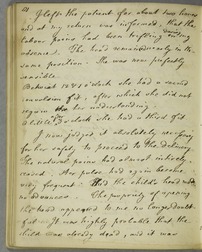 I left the patient for about two hours
and at my return was informed, that the
labour pains had been trifling during my
absence. The head remained nearly in the
same position. She was now perfectly
sensible.
Between 12 & 1 o'clock she had a second
convulsion fit, after which she did not
regain her understanding.
o'clock she had a third fit
I now judged it absolutely necessary
for her safety to proceed to the delivery.
The natural pains had almost entirely
ceased. Her pulse had again become
very frequent. the child's head
no advance. The propriety of opening
the head appeared to me no longer doubt-
ful. It was highly probable that the
child was already dead, and it was